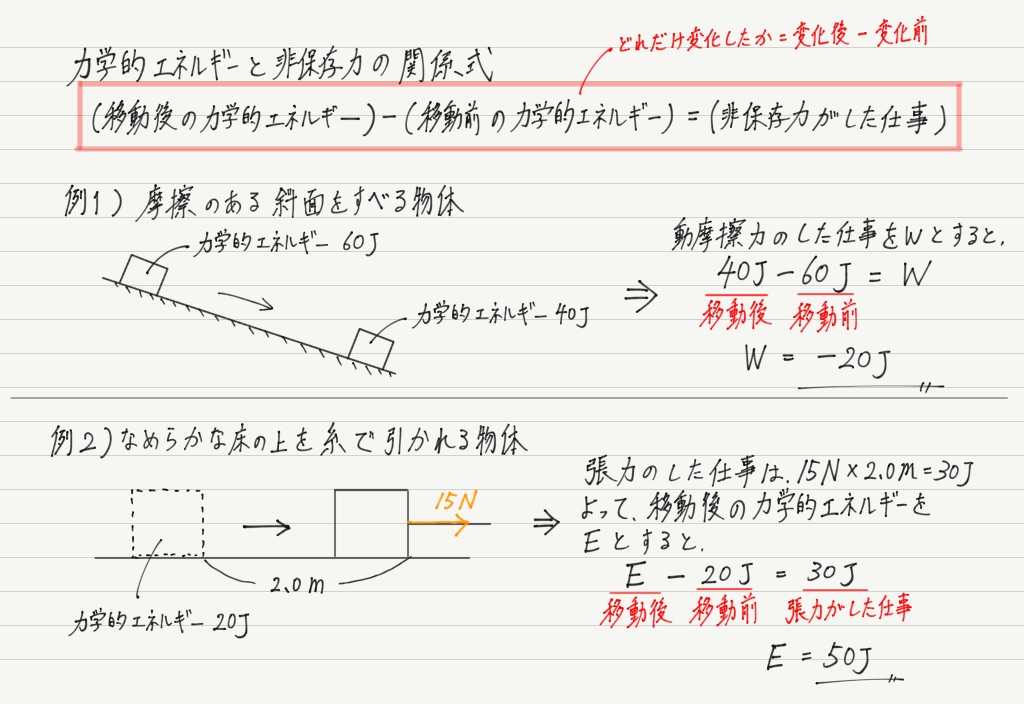 どれだけ変化したか=変化後-変化前
力学的エネルギーと非保存力の関係式
(移動後の力学的エネルギー)-(移動前の力学的エネルギー)=(非保存力がした仕事)
例1) 摩擦のある斜面をすべる物体
力学的エネルギー 60J
力学的エネルギー 40J
⇒
動摩擦力のした仕事をWとすると,
40J-60J = W
移動後 移動前
W = -20J
例2)なめらかな床の上を糸で引かれる物体
15N
2.0m
力学的エネルギー 20J
⇒
張力のした仕事は,15N×2.0m=30J
よって,移動後の力学的エネルギーを
Eとすると,
E - 20J = 30J
移動後 移動前 張力がした仕事
E = 50J